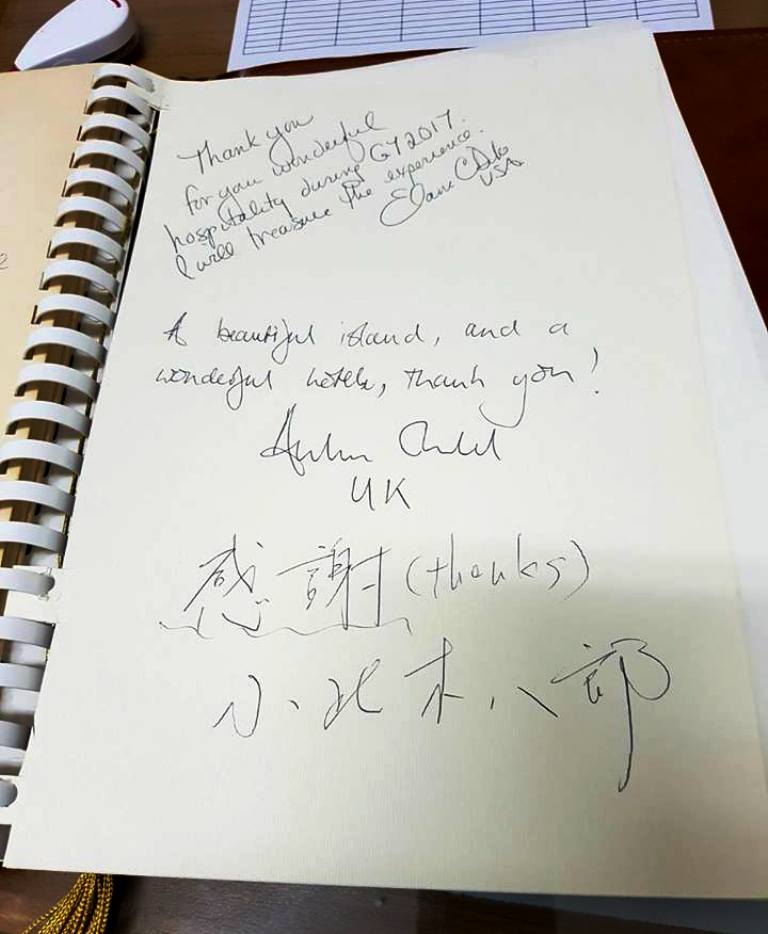 Thank you
for you wonderful
hospitality during GY2017.
I will treasure the experience.
USA
A beautiful island, and a
wonderful hotel, thank you!
UK
感謝(thanks)
小北木八郎